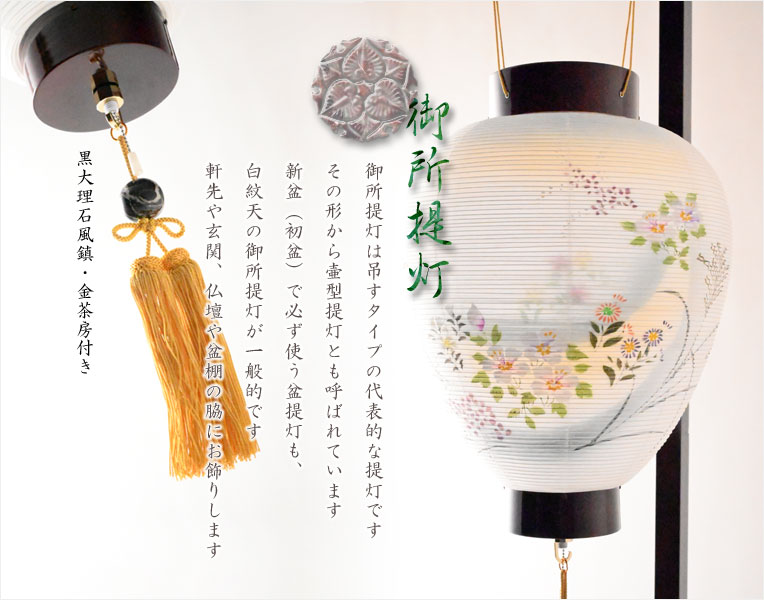 御所提灯
御所提灯は吊すタイプの代表的な提灯です
その形から壷型提灯とも呼ばれています
新盆（初盆）で必ず使う盆提灯も、
白紋天の御所提灯が一般的です
軒先や玄関、仏壇や盆棚の脇にお飾りします
黒大理石風鎮・金茶房付き